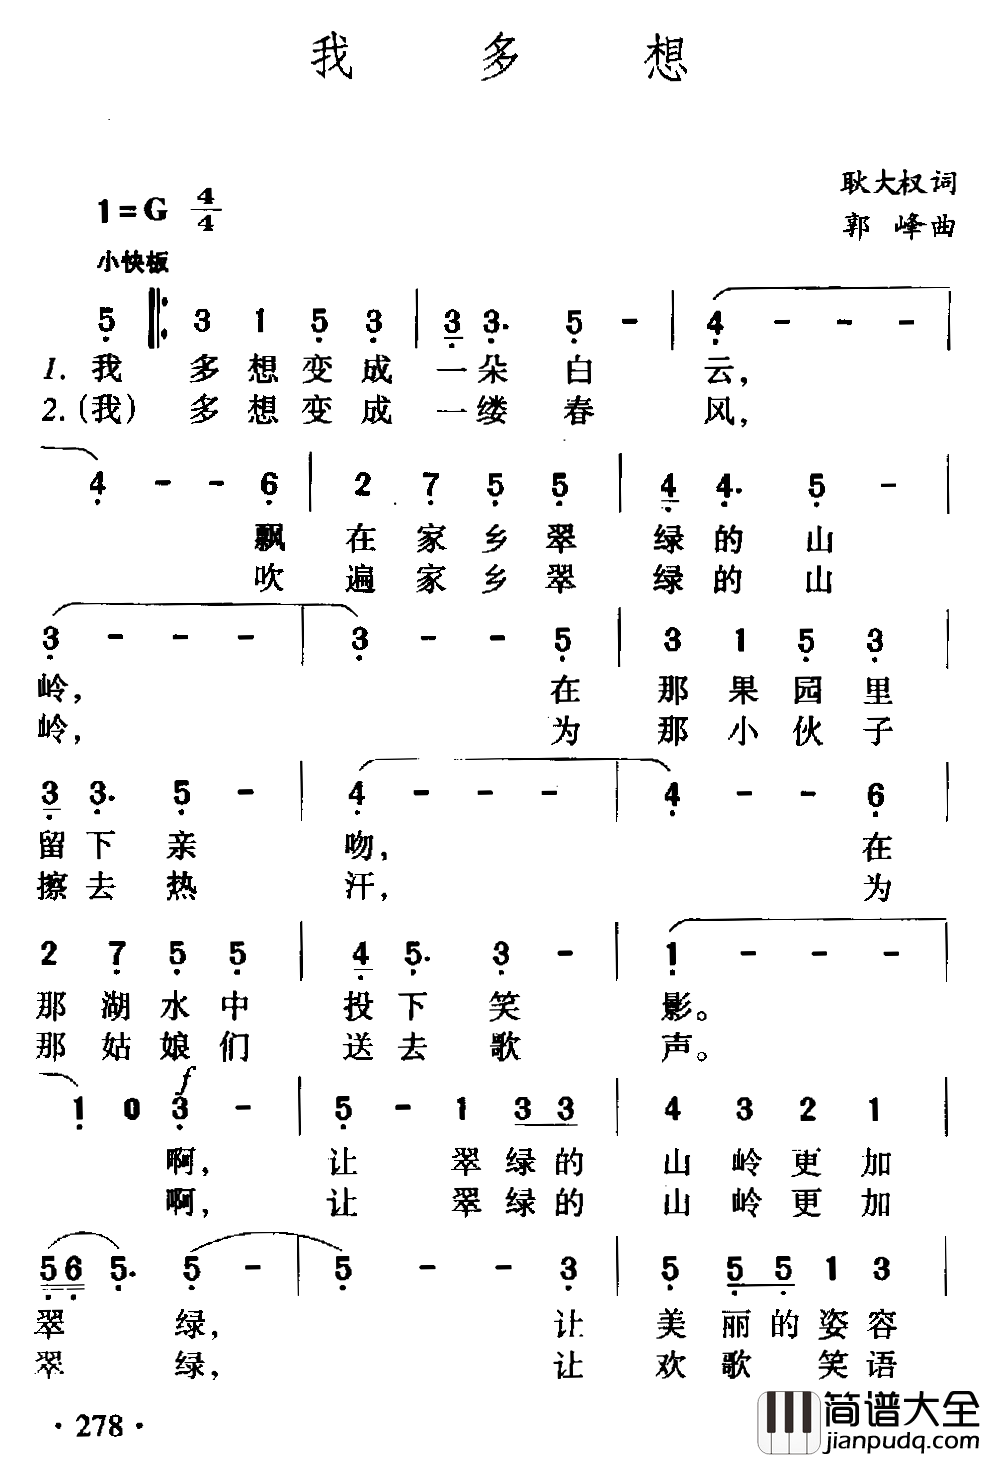 我 多 想
耿大权词
1=G 4/4
郭 峰曲
小快板
5 3 1 5 3 3 3. 5 - 4 - - -
1. 我 多 想 变 成 一 朵 白 云,
2.(我) 多 想 变 成 一 缕 春 风,
4 - - 6 2 7 5 5 4 4. 5 -
飘 在 家 乡 翠 绿 的 山
吹 遍 家 乡 翠 绿 的 山
3 - - - 3 - - 5 3 1 5 3
岭, 在 那 果 园 里
岭, 为 那 小 伙 子
3 3. 5 - 4 - - - 4 - - 6
留 下 亲 吻, 在
擦 去 热 汗, 为
2 7 5 5 4 5. 3 - 1 - - -
那 湖 水 中 投 下 笑 影。
那 姑 娘 们 送 去 歌 声。
f
1 0 3 - 5 - 1 3 3 4 3 2 1
啊, 让 翠 绿 的 山 岭 更 加
啊, 让 翠 绿 的 山 岭 更 加
5 6 5. 5 - 5 - - 3 5 5 5 1 3
翠 绿, 让 美 丽 的 姿 容
翠 绿, 让 欢 歌 笑 语
·278·
简谱大全
jianpudq.com